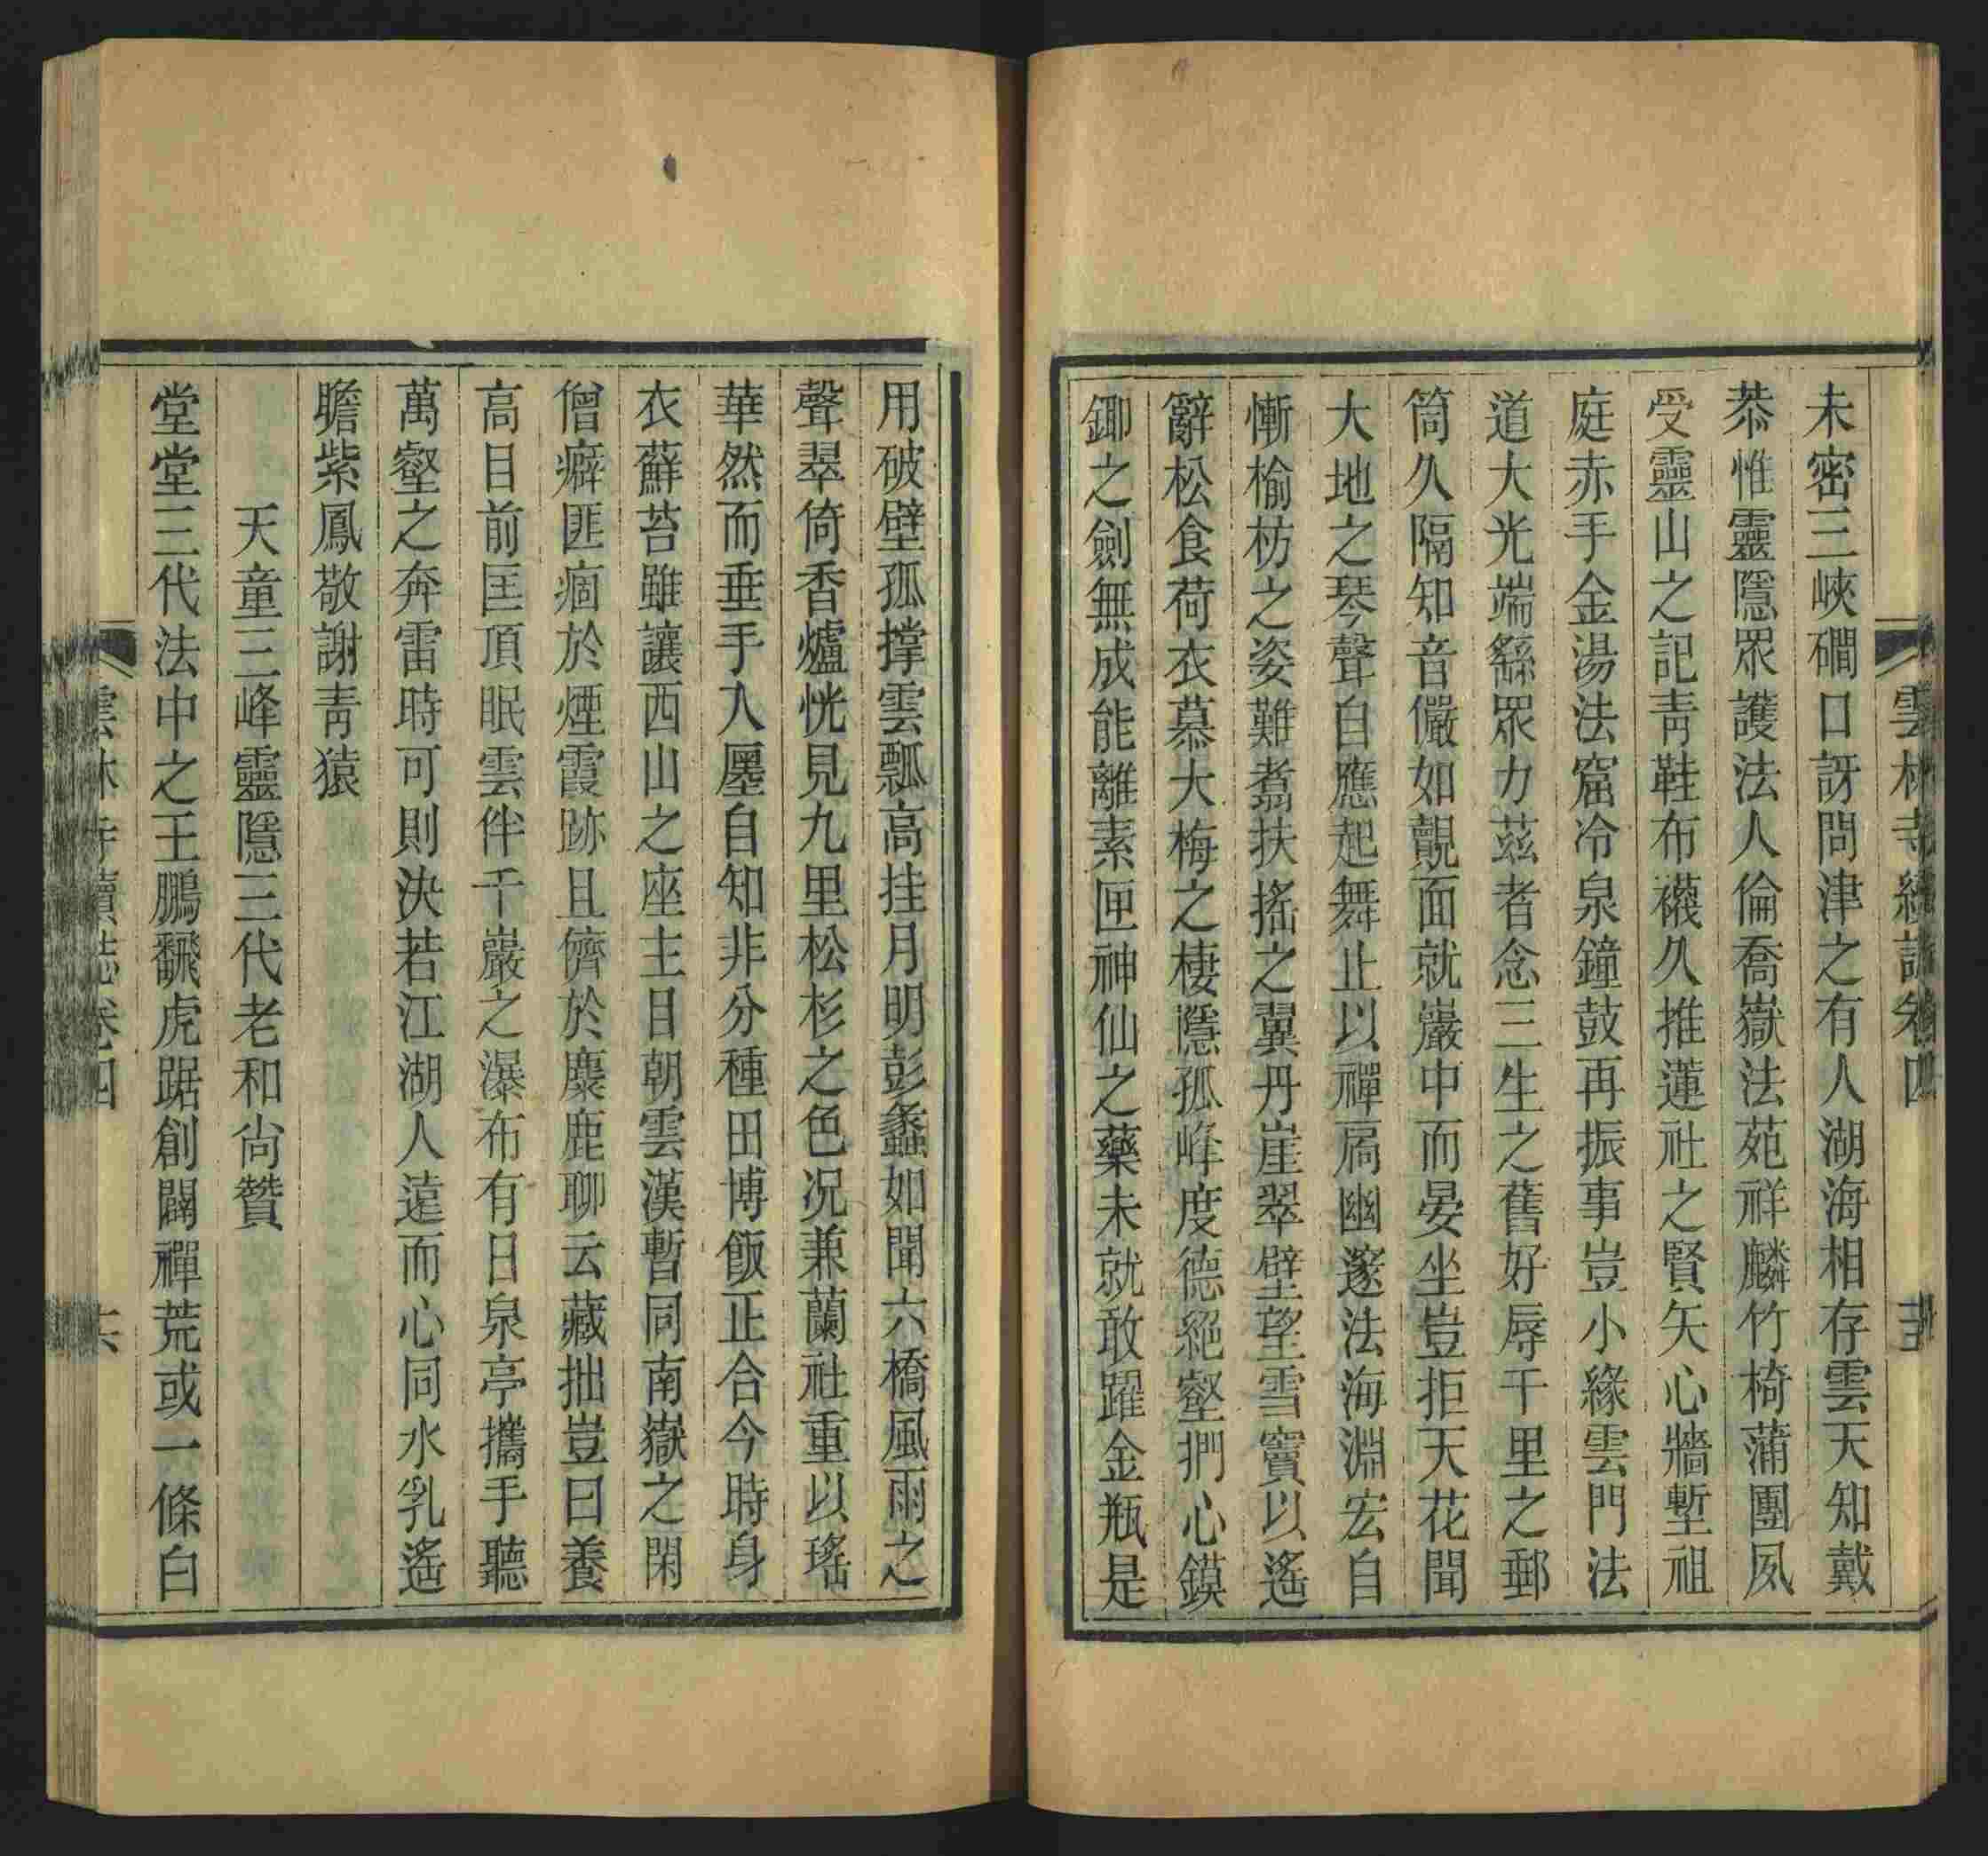 雲林寺續誌卷四
未密三峽磵口訝問津之有人湖海相存雲天知戴
恭惟靈隱眾護法人倫喬嶽法苑祥麟竹椅蒲團夙
受靈山之記青鞋布襪久推蓮社之賢矢心牆塹祖
庭赤手金湯法窟冷泉鐘鼓再振事豈小緣雲門法
道大光端繇眾力茲者念三生之舊好辱千里之郵
筒久隔知音儼如覿面就巖中而晏坐豈拒天花聞
大地之琴聲自應起舞止以禪扃幽邃法海淵宏自
慚榆枋之姿難翥扶搖之翼丹崖翠壁望雪竇以遙
辭松食荷衣慕大梅之棲隱孤峰度德絕壑捫心鏌
鎁之劍無成能離素匣神仙之藥未就敢躍金瓶是
用破壁孤撐雲瓢高挂月明彭蠡如聞六橋風雨之
聲翠倚香爐恍見九里松杉之色况兼蘭社重以瑤
華然而垂手入廛自知非分種田博飯正合今時身
衣蘚苔雖讓西山之座主目朝雲漢暫同南嶽之閑
僧癖匪痼於煙霞跡且儕於麋鹿聊云藏拙豈曰養
高目前匡頂眠雲伴千巖之瀑布有日泉亭攜手聽
萬壑之奔雷時可則決若江湖人遠而心同水乳遙
瞻紫鳳敬謝青猿
天童三峰靈隱三代老和尚贊
堂堂三代法中之王鵬飜虎踞創闢禪荒或一條白
雲林寺續誌卷四
六